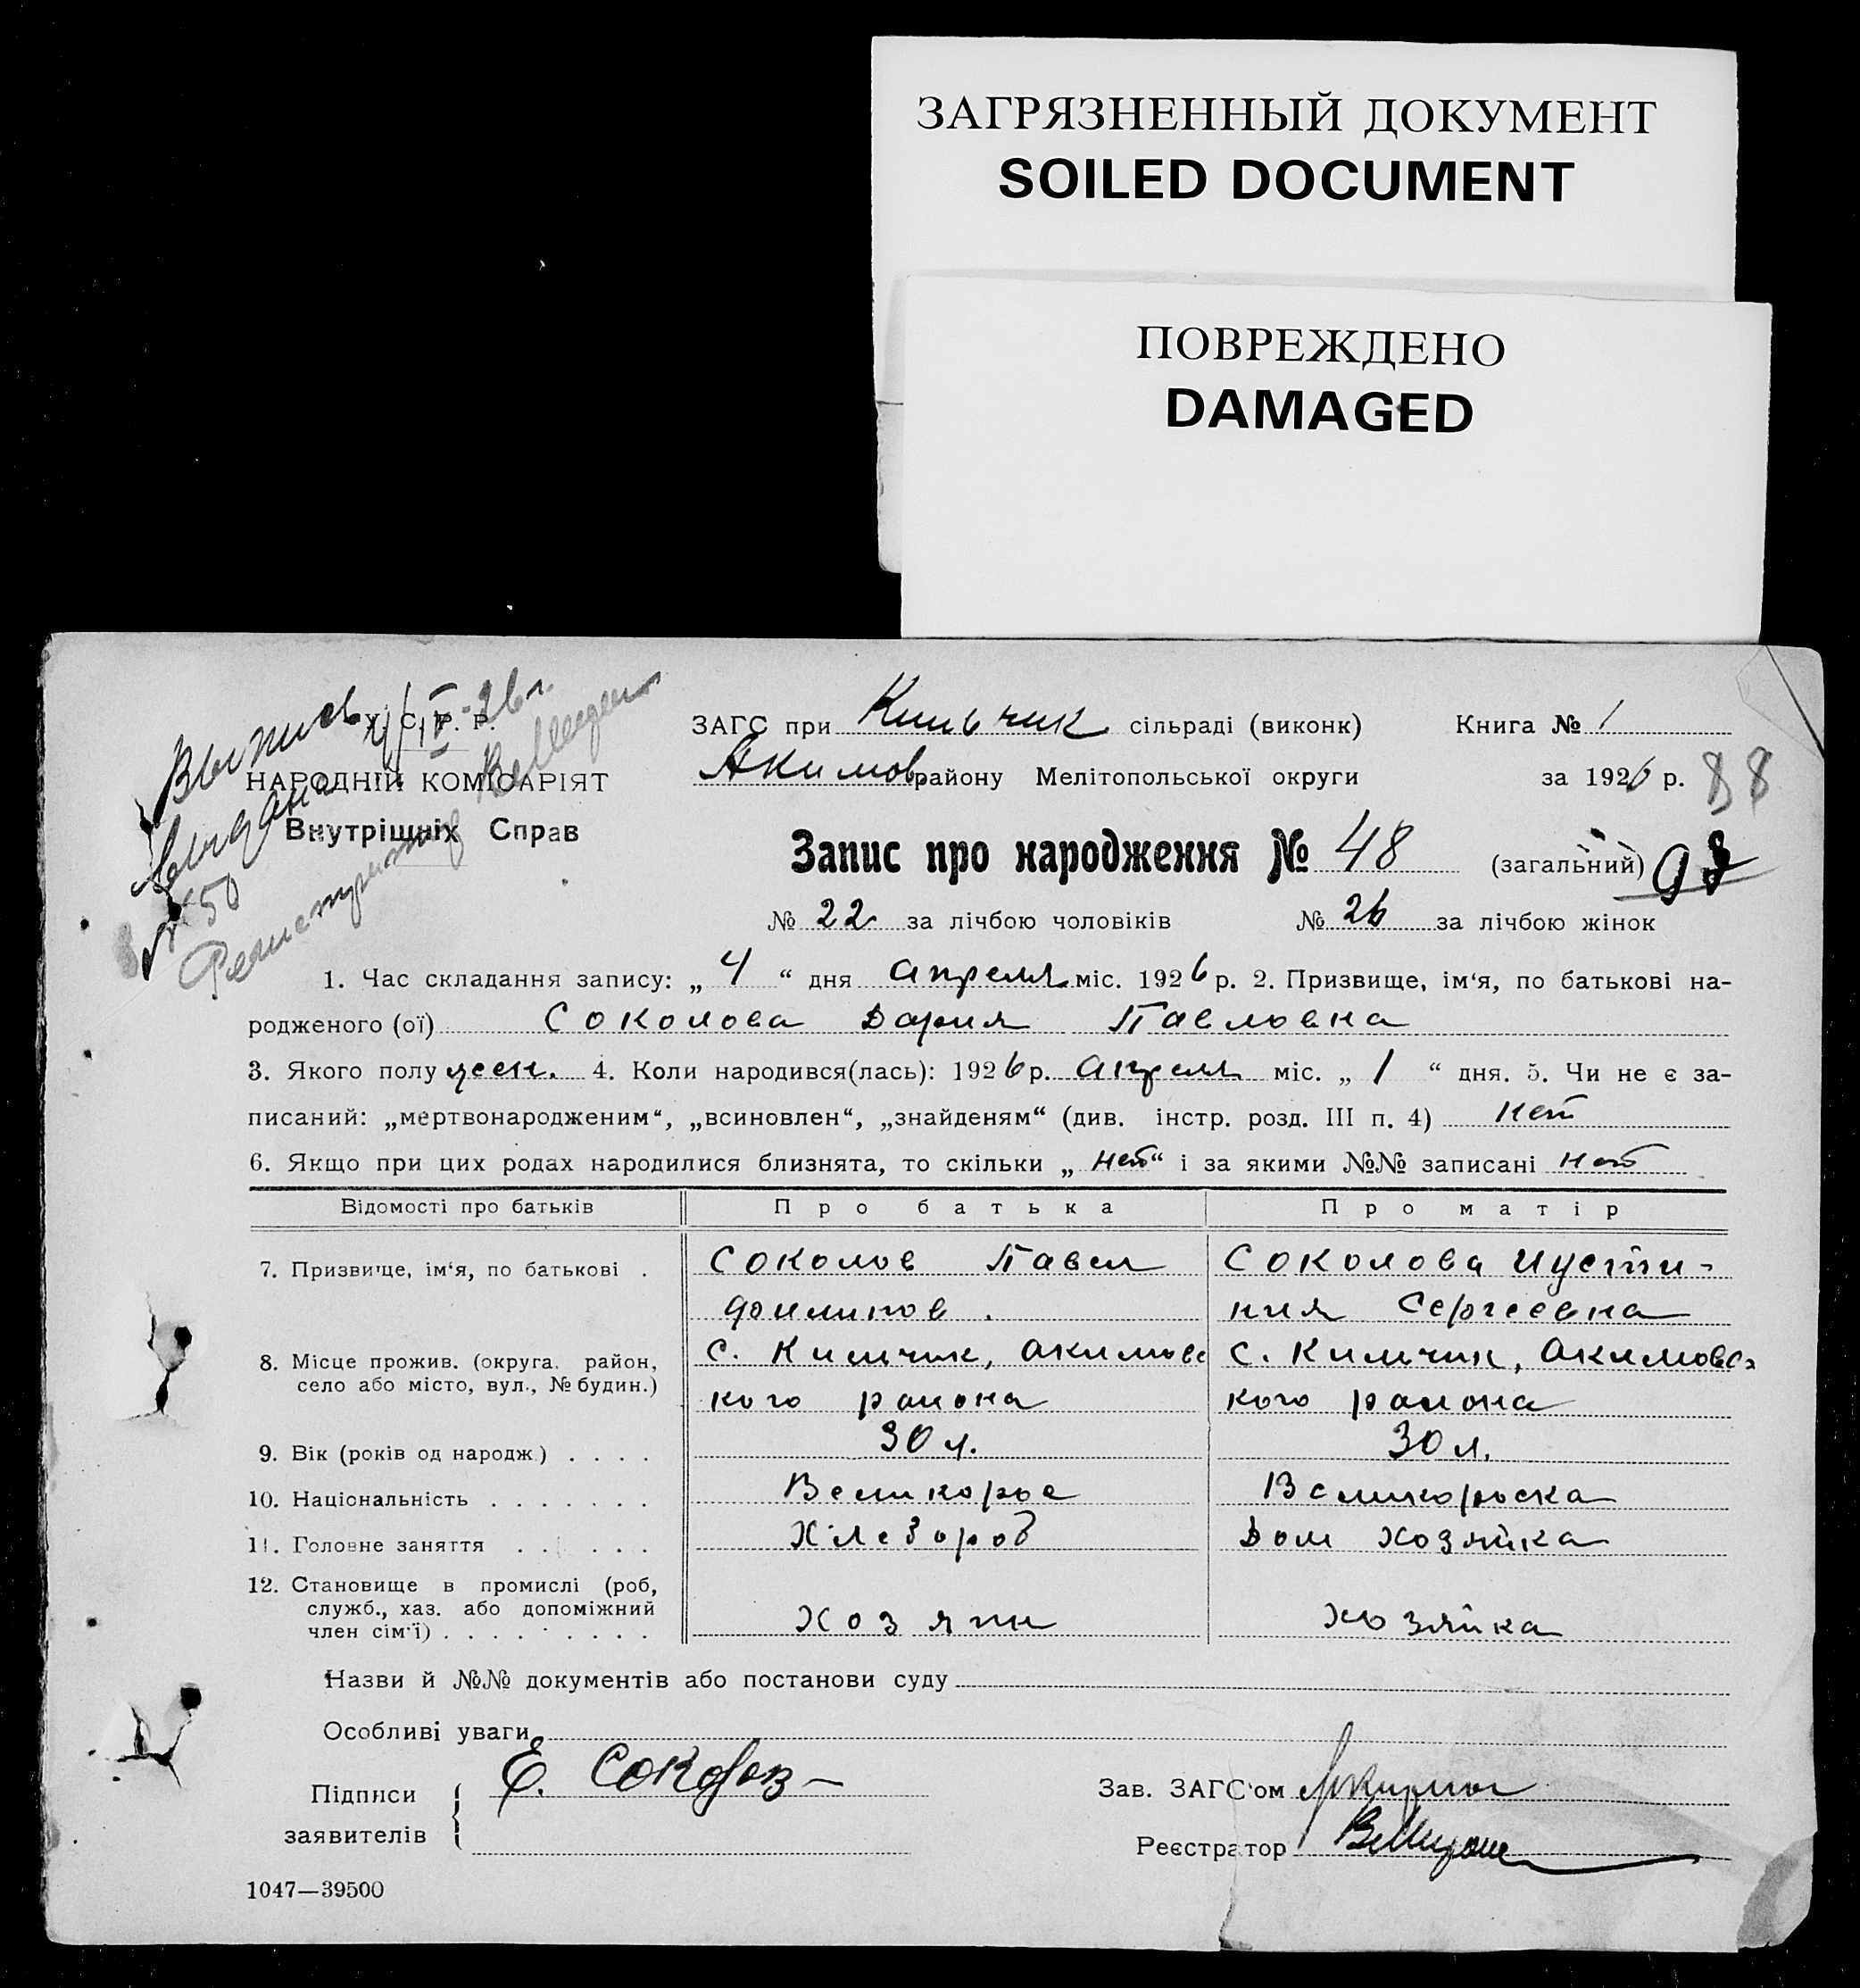 ЗАГРЯЗНЕННЫЙ ДОКУМЕНТ
SOILED DOCUMENT
ПОВРЕЖДЕНО
DAMAGED
Выпись 4/IV-26 г.
выдана
№ 50
У. С. Р. Р.
НАРОДНІЙ КОМІСАРІЯТ
Внутрішніх Справ
ЗАГС при Кильчик сільраді (виконк) Книга № 1
Акимов району Мелітопольської округи за 1926 р. 88
Запис про народження № 48 (загальний)
№ 22 за лічбою чоловіків № 26 за лічбою жінок
1. Час складання запису: „ 4 “ дня апреля міс. 1926 р. 2. Призвище, ім‘я, по батькові на-
родженого (ої) Соколова Дария Павловна
3. Якого полу жен. 4. Коли народився(лась): 1926 р. апреля міс. „ 1 “ дня. 5. Чи не є за-
писаний: „мертвонародженим“, „всиновлен“, „знайденям“ (див. інстр. розд. III п. 4) нет
6. Якщо при цих родах народилися близнята, то скільки „ нет “ і за якими №№ записані нет
Відомості про батьків Про батька Про матір
7. Призвище, ім‘я, по батькові . Соколов Павел Соколова Иусти-
Филипов. ния Сергеевна
8. Місце прожив. (округа, район, с. Кильчик, Акимовс с. Кильчик, Акимовс-
село або місто, вул., № будин.)
кого раиона кого раиона
9. Вік (років од народж.) . . . . 30 л. 30 л.
10. Національність . . . . . . . Великорос Великороска
11. Головне заняття . . . . . . Хлебороб Дом хозяйка
12. Становище в промислі (роб,
служб., хаз. або допоміжний
член сім‘ї) . . . . . . . . . Хозяин хозяйка
Назви й №№ документів або постанови суду
Особливі уваги
Підписи Е. Соколов Зав. ЗАГС‘ом
заявителів Реєстратор
1047—39500